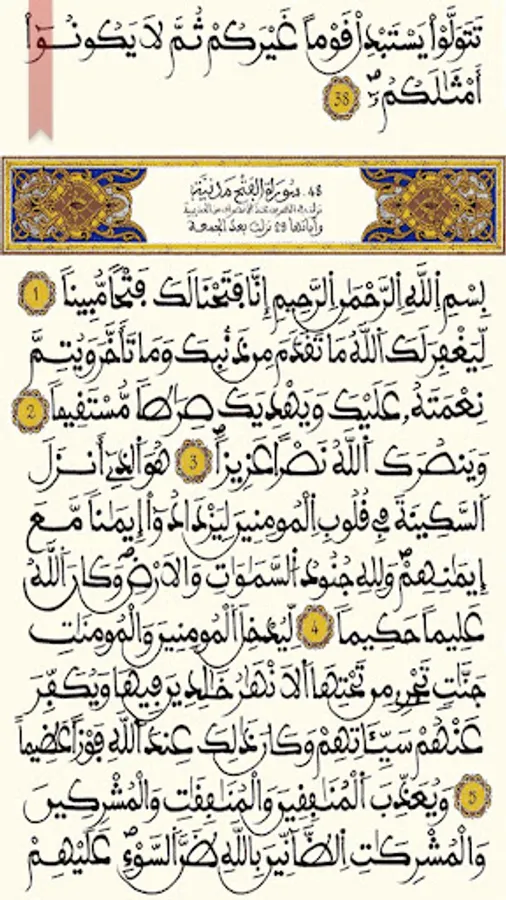 تَتَوَلَّوْاْ يَسْتَبْدِلْ قَوْماً غَيْرَكُمْ ثُمَّ لَا يَكُونُوٓاْ
أَمْثَٰلَكُمْ 38
48 - سورة الفتح مدنية
وآياتها 29 نزلت بعد الجمعة
بِسْمِ اِ۬للَّهِ اِ۬لرَّحْمَٰنِ اِ۬لرَّحِيمِ إِنَّا فَتَحْنَا لَكَ فَتْحاً مُّبِيناً 1
لِّيَغْفِرَ لَكَ اَ۬للَّهُ مَا تَقَدَّمَ مِن ذَنۢبِكَ وَمَا تَأَخَّرَ وَيُتِمَّ
نِعْمَتَهُۥ عَلَيْكَ وَيَهْدِيَكَ صِرَٰطاً مُّسْتَقِيماً 2
وَيَنصُرَكَ اَ۬للَّهُ نَصْراً عَزِيزاً 3 هُوَ اَ۬لذِےٓ أَنزَلَ
اَ۬لسَّكِينَةَ فِے قُلُوبِ اِ۬لْمُومِنِينَ لِيَزْدَادُوٓاْ إِيمَٰناً مَّعَ
إِيمَٰنِهِمْ وَلِلهِ جُنُودُ اُ۬لسَّمَٰوَٰتِ وَالَارْضِ وَكَانَ اَ۬للَّهُ
عَلِيماً حَكِيماً 4 لِّيُدْخِلَ اَ۬لْمُومِنِينَ وَالْمُومِنَٰتِ
جَنَّٰتٍ تَجْرِے مِن تَحْتِهَا اَ۬لَانْهَٰرُ خَٰلِدِينَ فِيهَا وَيُكَفِّرَ
عَنْهُمْ سَيِّـَٔاتِهِمْ وَكَانَ ذَٰلِكَ عِندَ اَ۬للَّهِ فَوْزاً عَظِيماً
5 وَيُعَذِّبَ اَ۬لْمُنَٰفِقِينَ وَالْمُنَٰفِقَٰتِ وَالْمُشْرِكِينَ
وَالْمُشْرِكَٰتِ اِ۬لظَّآنِّينَ بِاللَّهِ ظَنَّ اَ۬لسَّوْءِ عَلَيْهِمْ